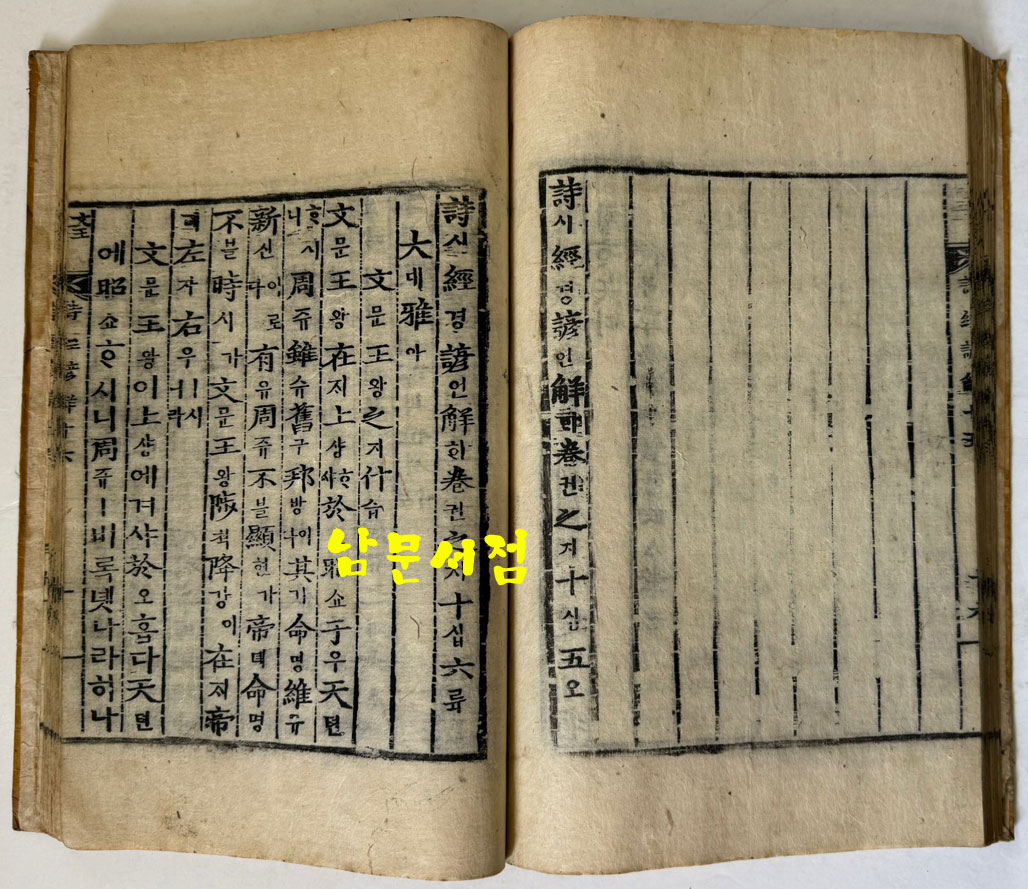 詩시經경諺언解ᄒᆡ卷권之지十십五오
詩시經경諺언解ᄒᆡ卷권之지十십六륙
大대雅아
文문王왕之지什습
文문王왕在ᄌᆡ上샹ᄒᆞ샤於오昭쇼于우天텬
ᄒᆞ시니周쥬雖슈舊구邦방이나其기命명維유
新신이로다有유周쥬不블顯현가帝뎨命명
不블時시가文문王왕陟쳑降강이在ᄌᆡ帝
뎨左자右우ㅣ시니라
文문王왕이上샹에겨샤於오홉다天텬
에昭쇼ᄒᆞ시니周쥬ㅣ비록녯나라히나
남문서점